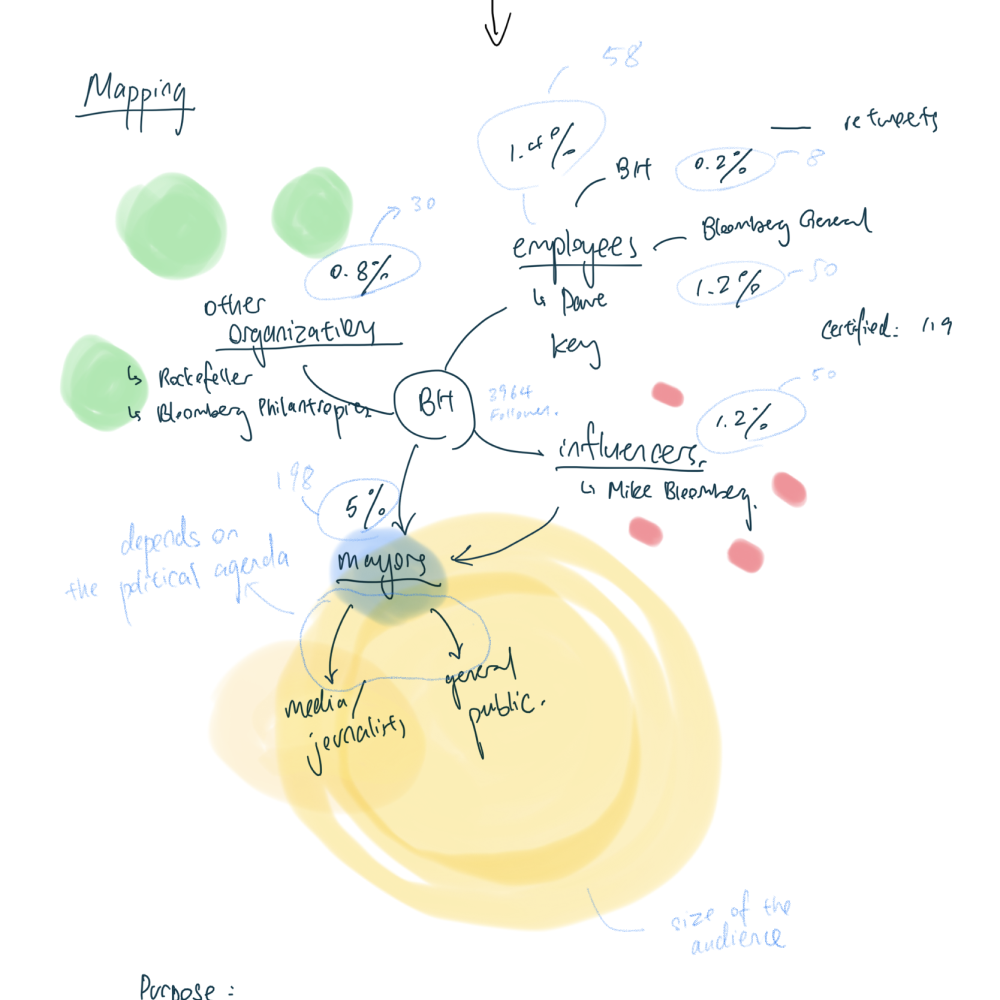 Mapping
58
1.4%
retweets
BH
0.2%
8
30
0.8%
employees
Bloomberg General
1.2%
50
↳ Dave
Key
other
Organization
Certified: 119
↳ Rockefeller
↳ Bloomberg Philantropies
BH
3964
Follower.
50
1.2%
influencers.
↳ Mike Bloomberg.
198
5%
depends on
the political agenda
mayors
media/
jernalists
general
public.
size of the
audience
Purpose: